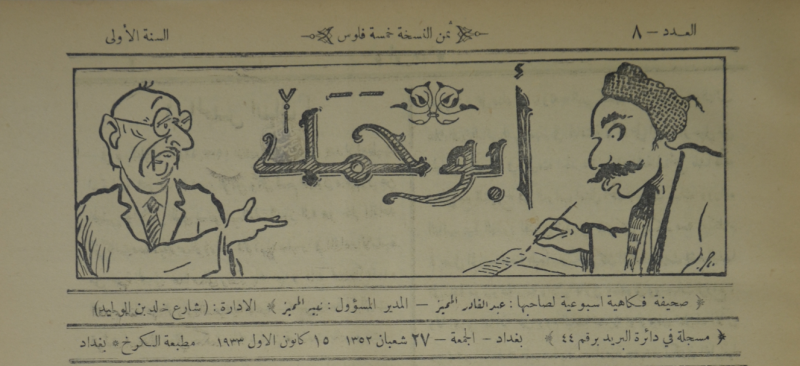 العدد — ٨
ثمن النسخة خمسة فلوس
السنة الأولى
أبو حمد
صحيفة فكاهية اسبوعية لصاحبها : عبدالقادر المميز — المدير المسؤول : نجيب المميز الادارة : ( شارع خالد بن الوليد )
مسجلة في دائرة البريد برقم ٤٤ بغداد — الجمعة — ٢٧ شعبان ١٣٥٢ ١٥ كانون الاول ١٩٣٣ مطبعة الكرخ * بغداد